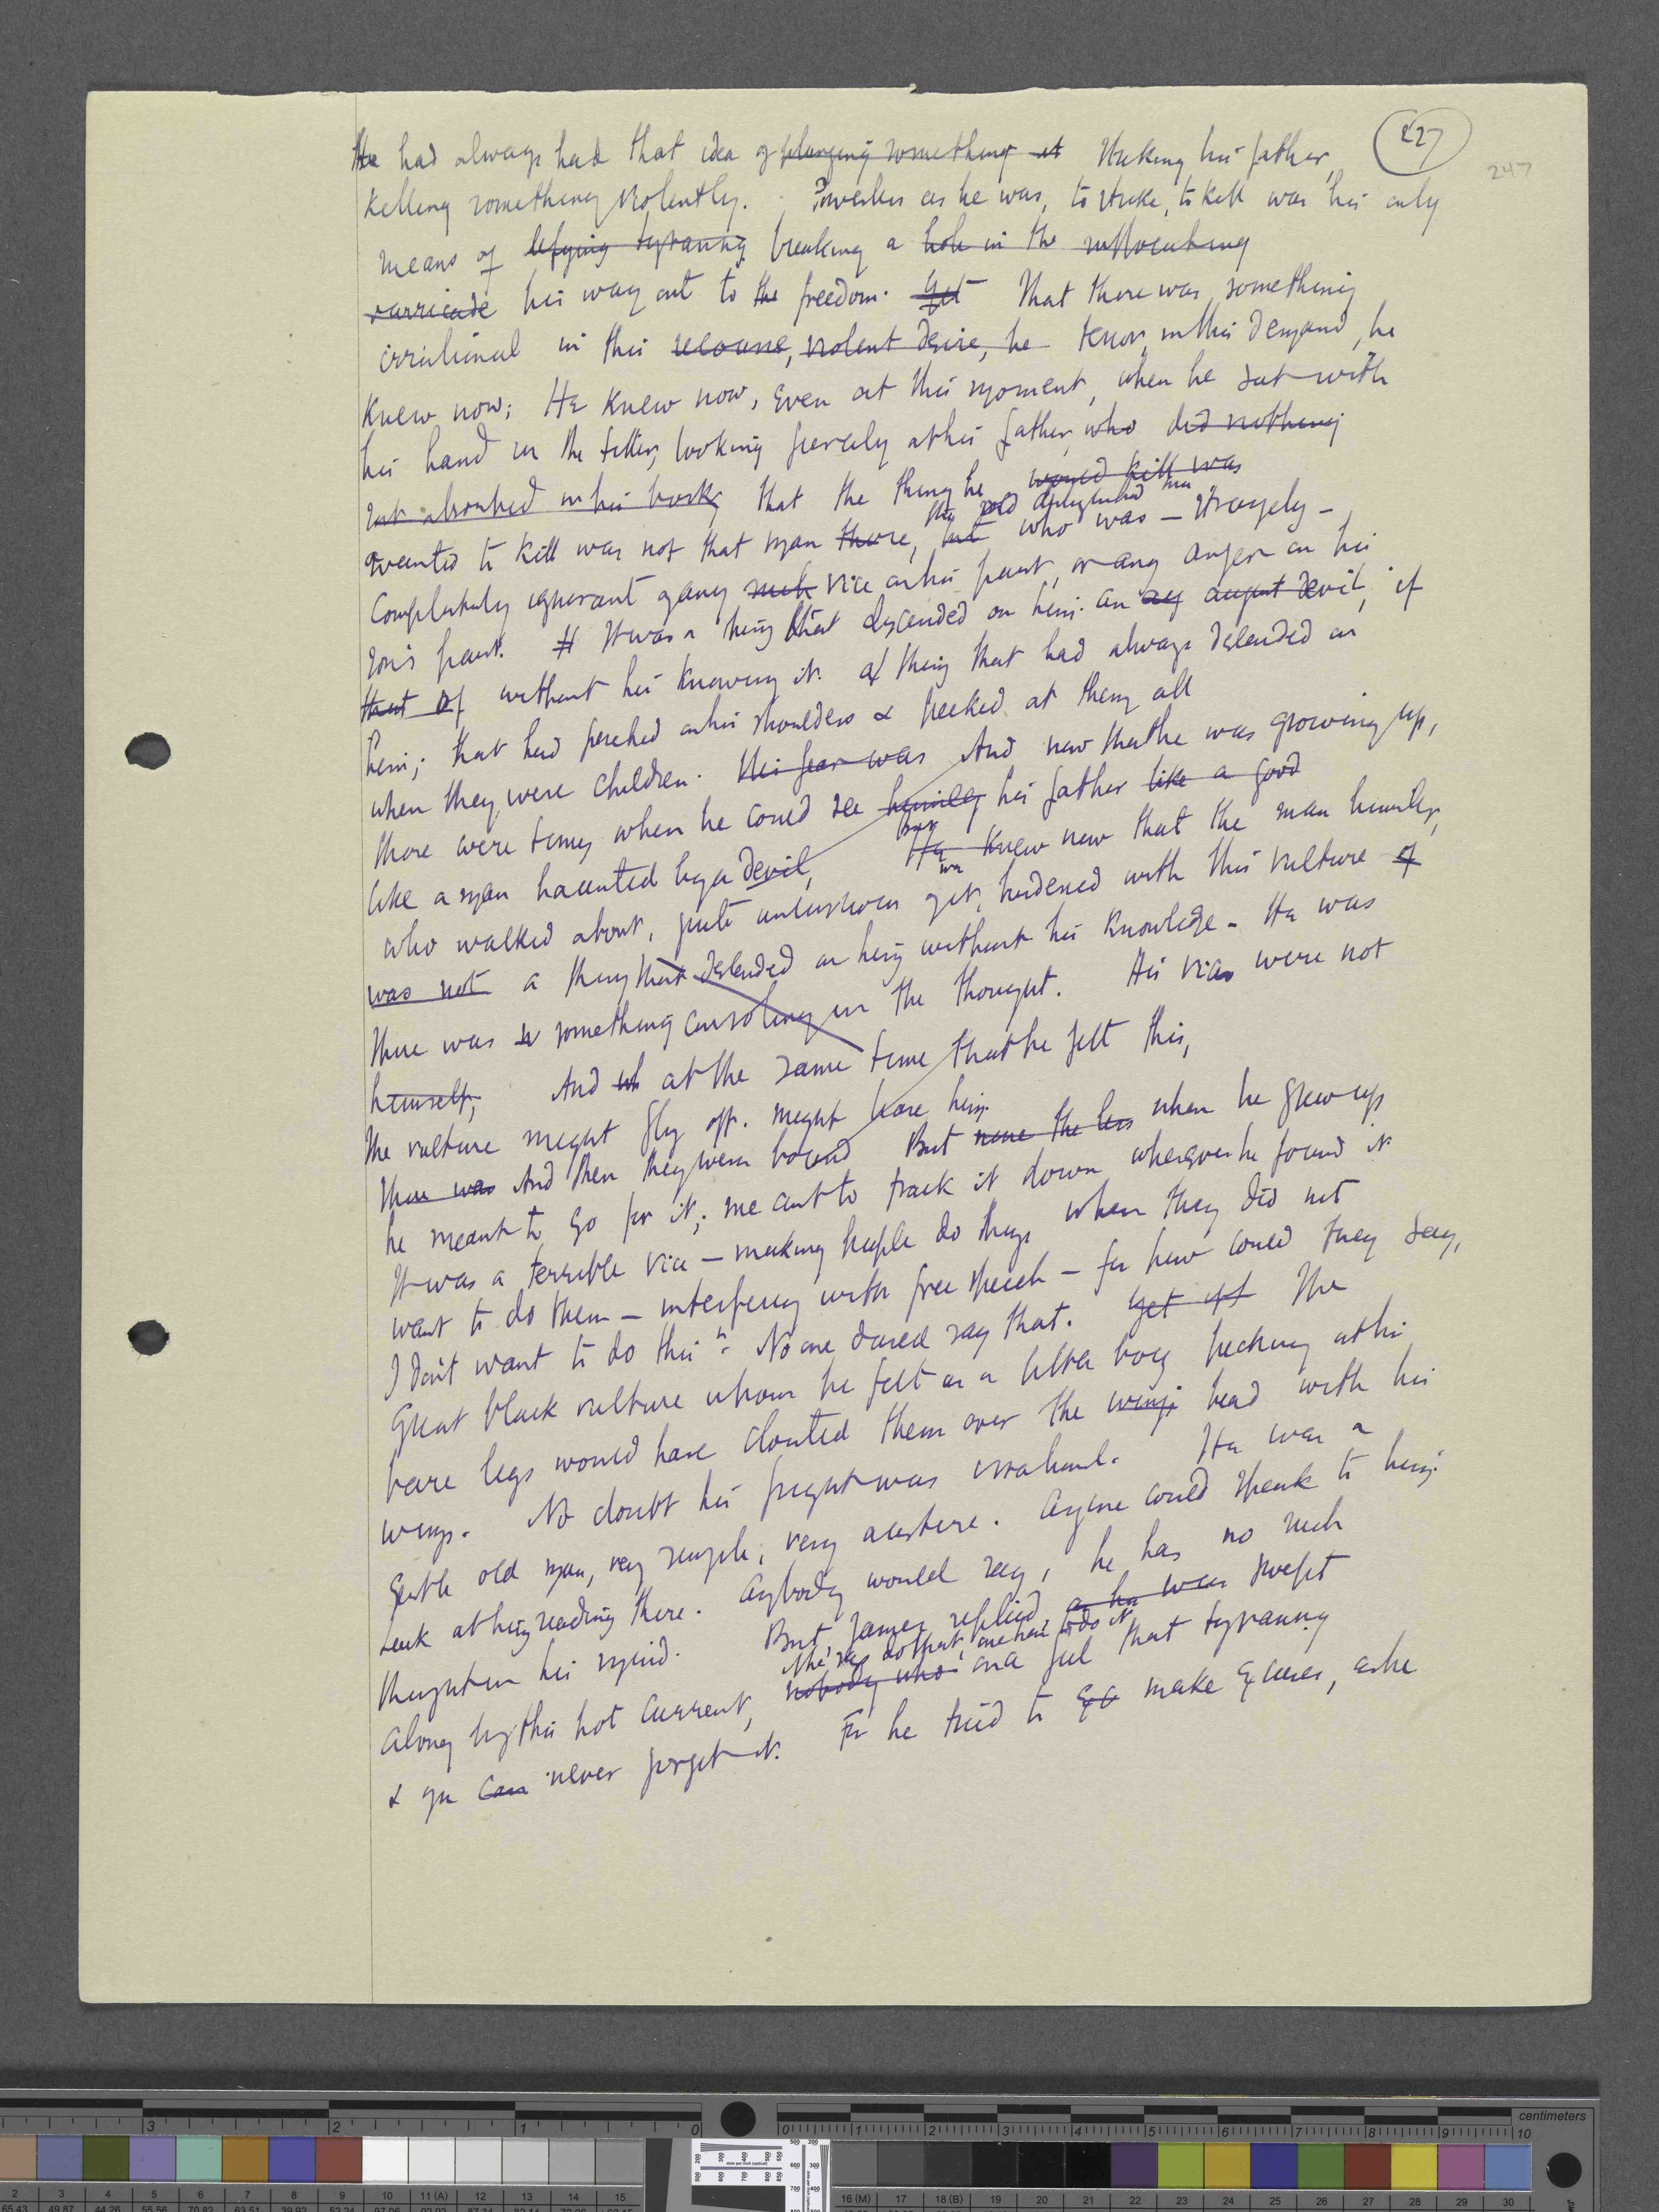 227
247
He had always had that idea of plunging something at striking his father,
killing something violently. Powerless as he was, to strike, to kill was his only
means of defying tyranny breaking a hole in the suffocating
barricade his way out to the freedom. Yet That there was something
irrational in this violent desire, he terror, in this demand, he
knew now; He knew now, even at this moment, when he sat with
his hand on the tiller, looking fiercely at his father, who did nothing
sat absorbed in his book, that the thing he would kill was
the old him
wanted to kill was not that man there, but who was – strangely –
completely ignorant of any such vice on his part, or any anger on his
son's part. It was a thing that descended on him. an devil, if
that of without his knowing it. a thing that had always descended on
him; that had perched on his shoulders & pecked at them all
when they were children. His fear was And now that he was growing up,
there were times when he could see his father like a good
like a man haunted by a devil, But He knew now that the man
who walked about, quite unconscious yet, was burdened with this vulture of
was not a thing that descended on him without his knowledge - He was
There was something consoling in the thought. His vices were not
himself; And at the same time that he felt this,
The vulture might fly off. might leave him.
There was And then they were bound But none the less when he grew up
he meant to go for it; meant to track it down wherever he found it
It was a terrible vice – making people do things when they did not
want to do them – interfering with free speech – for how could they say,
I don't want to do this". No one dared say that. Yet The
Great black vulture whom he felt as a little boy pecking at his
bare legs would have clouted them over the wings head with his
wings. No doubt his fright was irrational. He was a
gentle old man, very simple; very austere. Anyone could speak to him.
Look at him reading there. Anybody would say, he has no such
thought in his mind. But, James replied, as he was swept
along by this hot current, nobody who once feel that tyranny
& you can never forget it. For he tried to make excuses, as he